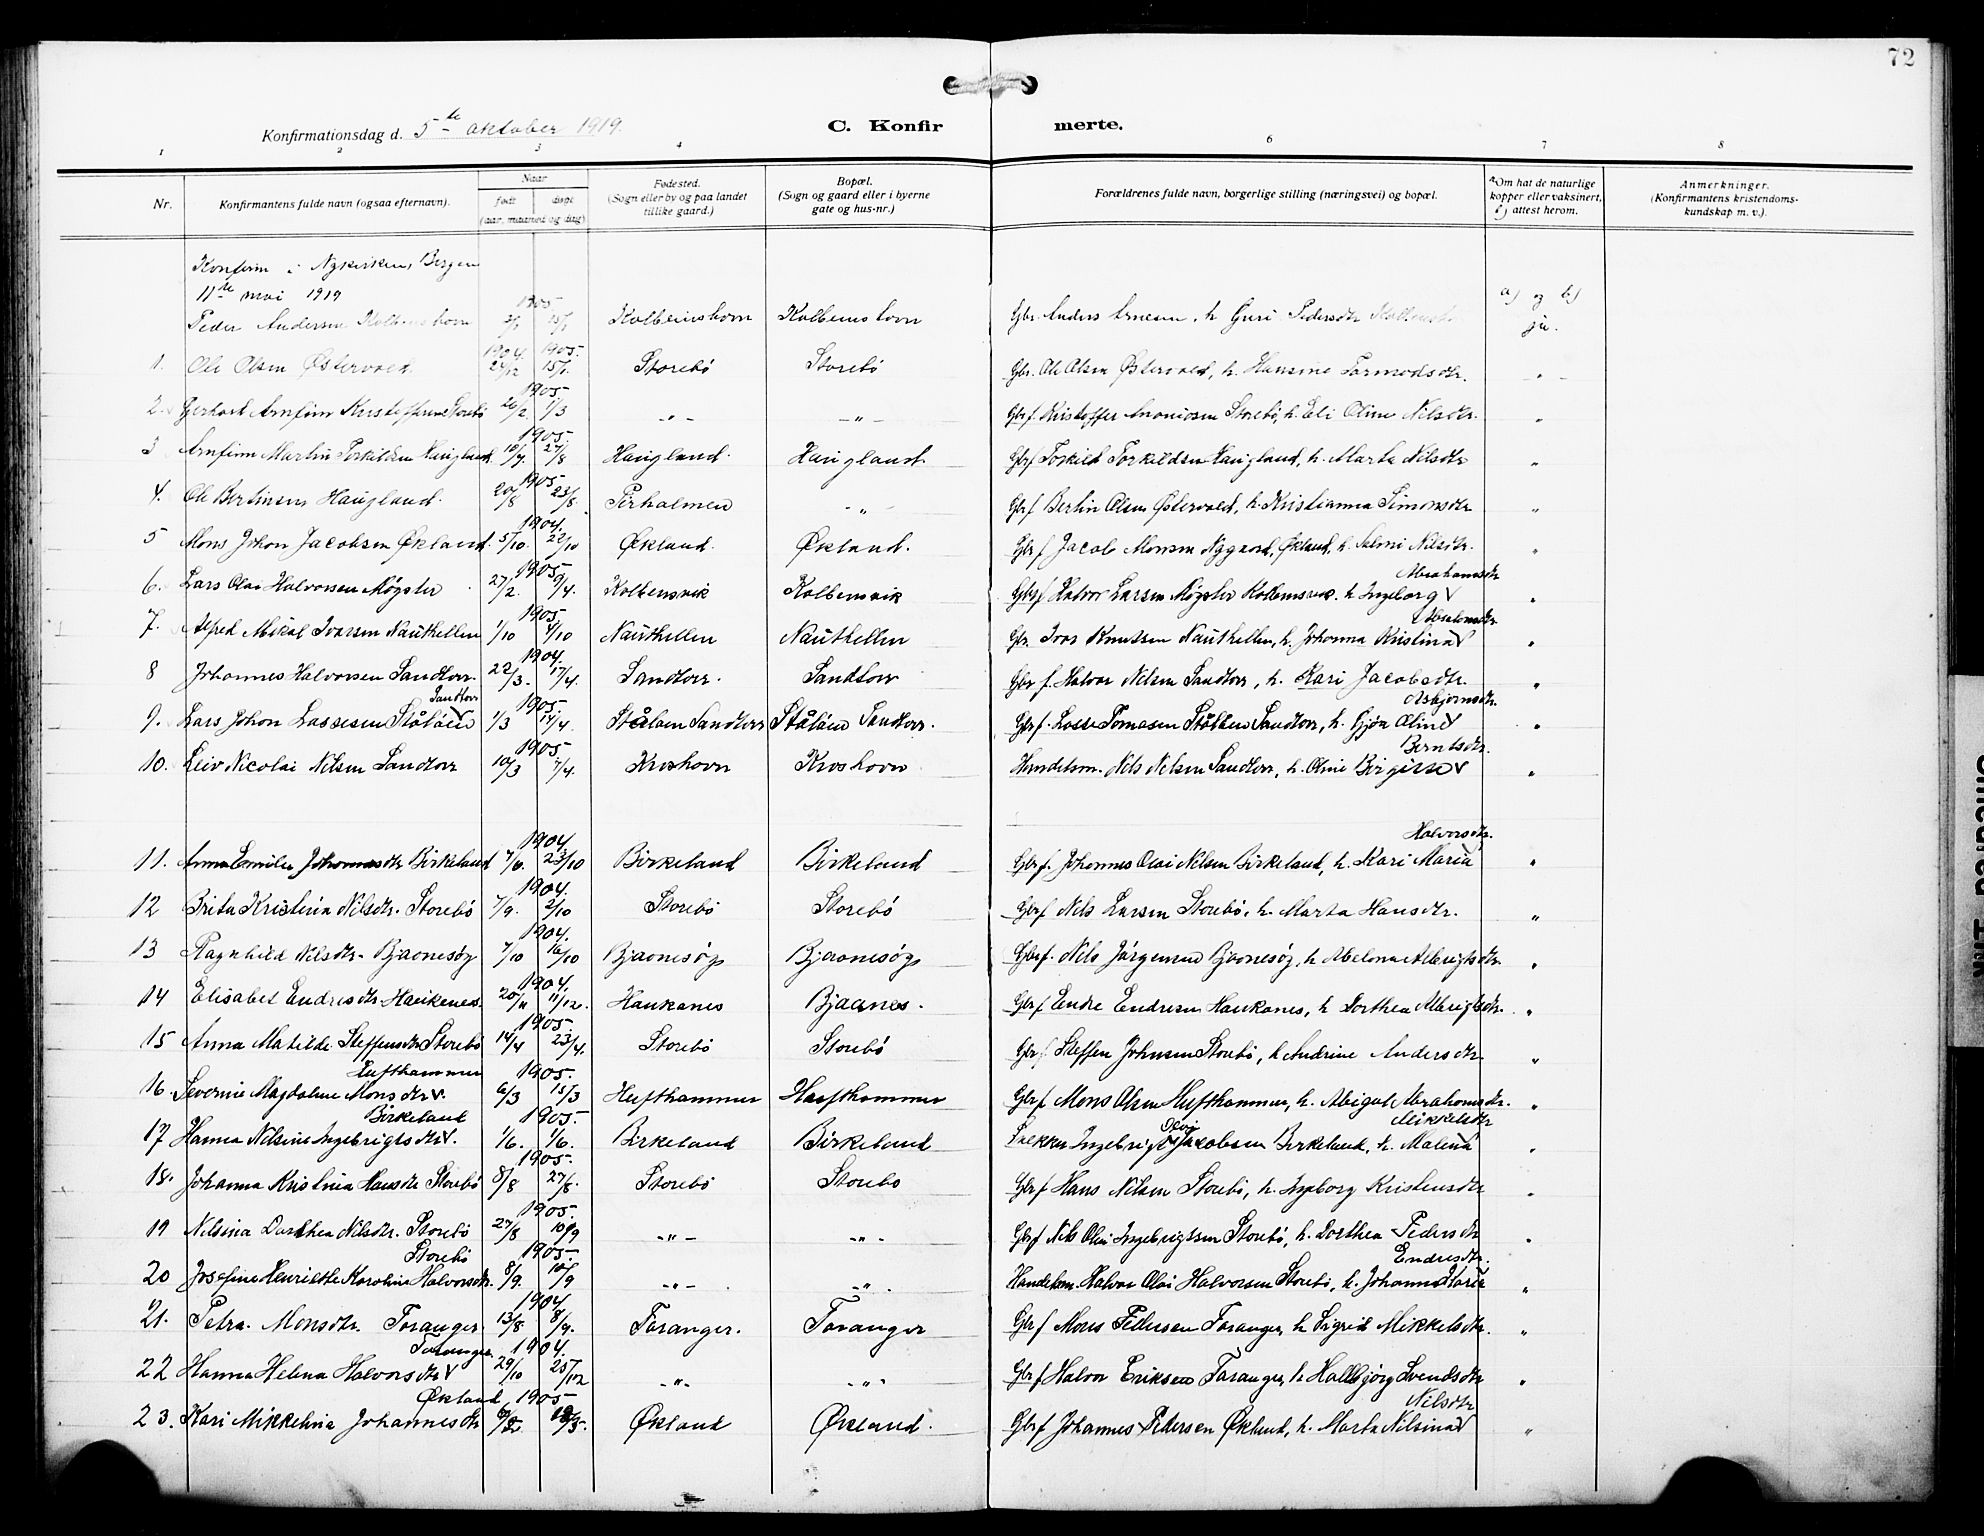 72
Konfirmationsdag d. 5te oktober 1919.
C. Konfirmerte.
1 2 3 4 6 7 8
Nr. Konfirmantens fulde navn (ogsaa efternavn). Naar født døpt (aar, maaned og dag) Fødested. (Sogn eller by og paa landet tillike gaard.) Bopæl. (Sogn og gaard eller i byerne gate og hus-nr.) Forældrenes fulde navn, borgerlige stilling (næringsvei) og bopæl. a) Om hat de naturlige kopper eller vaksinert, b) attest herom. Anmerkninger. (Konfirmantens kristendomskundskap m. v.).
Konfirm i Nykirken, Bergen
11te mai 1919 a) og b)
Peder Andersen Kolbeinshovn 1905 Kolbeinshovn Kolbeinshovn Gbr. Anders Arnesen, h. Guri Pedersdtr ja.
1. Ole Olsen Østervold 1904 1905 15/1 Storebö Storebö Gbr. Ole Olsen Østervold, h. Hansine Tormodsdtr. "
2. Gerhard Arnfinn Kristoffersen Storebö 1905 26/2 1/3 " " Gbrf. Kristoffer Ananiasen Storebö, h. Eli Oline Nilsdtr. "
3 Arnfinn Martin Torkildsen Haugland 1905 27/8 Haugland. Haugland Gbrf Torkild Torkildsen Haugland, h. Marta Nilsdtr "
4. Ole Bertinsen Haugland. 1905 20/8 23/8 Pirholmen " Gbrf Bertin Olsen Østervold, h. Kristianna Simonsdtr "
5 Mons Johan Jacobsen Økland. 1904. 5/10. 22/10 Økland. Økland. Gbrf Jacob Monsen Nygaard, Økland, h. Salmi Nilsdtr. "
6. Lars Olai Halvorsen Møgster 1905 27/2. 9/4. Kolbensvik Kolbensvik Gbrf Halvor Larsen Møgster Kolbensvik. h. Ingeborg Abrahamsdtr "
7. Alfred Mikal Ivarsen Nauthellen 1905 1/10 /10 Nauthellen Nauthellen Gbr. Ivar Knutsen Nauthellen, h. Johanna Kristina "
8 Johannes Halvorsen Sandtorv. 1904. 22/3. 17/4. Sandtorv. Sandtorv Gbr f. Halvor Nilsen Sandtorv, h. Kari Jacobsdtr. "
9. Lars Johan Lassesen Ståløen Sandtorv 1905. 1/3 14/4. Ståløen Sandtorv Ståløen Sandtorv. Gbr f. Lasse Tomasen Ståløen Sandtorv, h. Gjøa Oline Asbjørnsdtr. "
10. Leiv Nicolai Nilsen Sandtorv 1905 10/3 7/4. Kroshovn Kroshovn Handelsm. Nils Nilsen Sandtorv, h. Oline Birgitte Berntsdtr. "
11. Anna Emilie Johannesdtr Birkeland 1904. 23/10 Birkeland Birkeland Gbrf. Johannes Olai Nilsen Birkeland, h. Kari Maria Halvorsdtr. "
12 Brita Kristina Nilsdtr. Storebö 1904. 7/9. 2/10 Storebö Storebö Gbrf Nils Larsen Storebö, h. Marta Hansdtr. "
13 Ragnhild Nilsdtr. Bjaanesøy 1904. 7/10 16/10 Bjaanesøy Bjaanesøy Gbrf. Nils Jörgensen Bjaanesøy, h. Abelona Albrigtsdtr. "
14 Elisabet Endresdtr Haukenes. 1904. 20/11 11/12. Haukanes Bjaanes. Gbrf Endre Endresen Haukanes, h Dorthea Albrigtsdtr. "
15 Anna Matilde Steffensdtr Storebö 1905. 14/4 23/4. Storebö Storebö Gbr f Steffen Johnsen Storebö, h Andrine Andersdtr. "
16. Severine Magdalene Monsdtr Hufthammer 1905. 6/3 15/3 Hufthammer Hufthammer Gbrf Mons Olsen Hufthammer, h. Abigael Abrahamsdtr. "
17 Hanna Nilsine Ingebrigtsdtr. Birkeland 1905. 1/6. 1/6. Birkeland Birkeland Snekker Ingebrigt Jacobsen Birkeland, h. Malena Mikkelsdtr "
18. Johanna Kristina Hansdtr Storebö 1905. 8/8 27/8. Storebö Storebö Gbrf Hans Nilsen Storebö, h. Ingeborg Kristensdtr "
19 Nilsina Dorthea Nilsdtr. Storebö 1905. 27/8 10/9 " " Gbrf Nils Olai Ingebrigtsen Storebö, h. Dorthea Pedersdtr "
20 Josefine Henriette Karolina Halvorsdtr. Storebö 1905. 8/9. 10/9 " " Handelsm. Halvor Olai Halvorsen Storebö, h. Johanna Maria Endresdtr. "
21. Petra Monsdtr. Toranger 1904 13/8 8/9. Toranger. Toranger Gbr f Mons Pedersen Toranger, h Sigrid Mikkelsdtr. "
22 Hanna Helena Halvorsdtr Toranger 1904. 29/10 25/12 " " Gbr f Halvor Eriksen Toranger, h Hallbjörg Svendsdtr "
23. Kari Mikkelina Johannesdtr Økland 1905 Økland Økland. Gbrf Johannes Pedersen Økland, h. Marta Nilsina Nilsdtr "